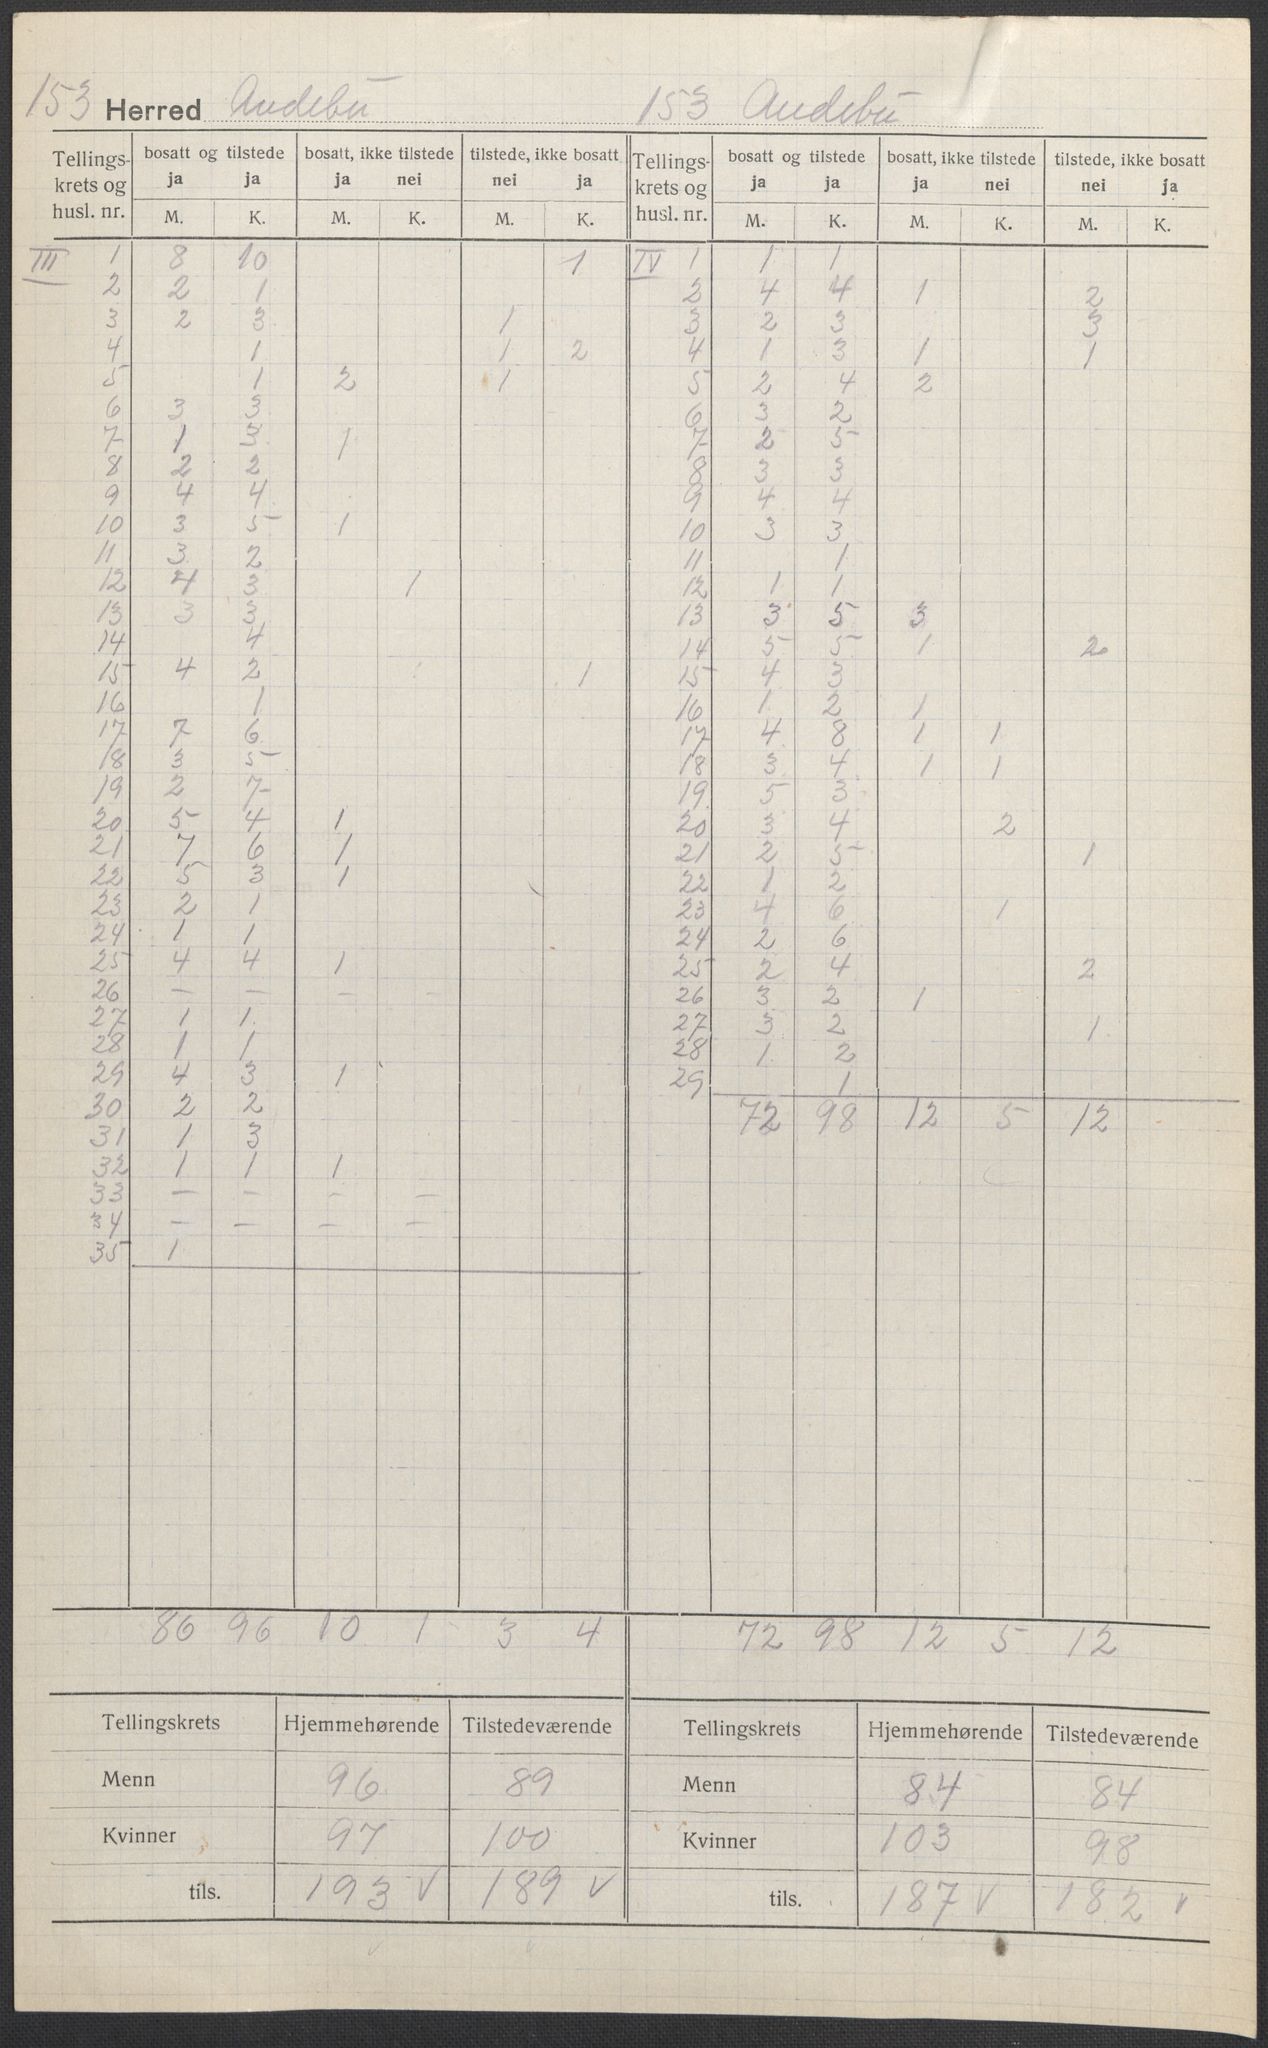 153 Herred Andebu 153 Andebu
Tellings- bosatt og tilstede bosatt, ikke tilstede tilstede, ikke bosatt Tellings- bosatt og tilstede bosatt, ikke tilstede tilstede, ikke bosatt
krets og ja ja ja nei nei ja krets og ja ja ja nei nei ja
husl. nr. M. K. M. K. M. K. husl. nr. M. K. M. K. M. K.
III 1 8 10 1 IV 1 1 1
2 2 1 2 4 4 1 2
3 2 3 1 3 2 3 3
4 1 1 2 4 1 3 1 1
5 1 2 1 5 2 4 2
6 3 3 6 3 2
7 1 3 1 7 2 5
8 2 2 8 3 3
9 4 4 9 4 4
10 3 5 1 10 3 3
11 3 2 11 1
12 4 3 1 12 1 1
13 3 3 13 3 5 3
14 4 14 5 5 1 2
15 4 2 1 15 4 3
16 1 16 1 2 1
17 7 6 17 4 8 1 1
18 3 5 18 3 4 1 1
19 2 7 19 5 3
20 5 4 1 20 3 4 2
21 7 6 1 21 2 5 1
22 5 3 1 22 1 2
23 2 1 23 4 6 1
24 1 1 24 2 6
25 4 4 1 25 2 4 2
26 – – – – 26 3 2 1
27 1 1 27 3 2 1
28 1 1 28 1 2
29 4 3 1 29 1
30 2 2 72 98 12 5 12
31 1 3
32 1 1 1
33 – – – –
34 – – – –
35 1
86 96 10 1 3 4 72 98 12 5 12
Tellingskrets Hjemmehørende Tilstedeværende Tellingskrets Hjemmehørende Tilstedeværende
Menn 96 89 Menn 84 84
Kvinner 97 100 Kvinner 103 98
tils. 193 v 189 v tils. 187 v 182 v